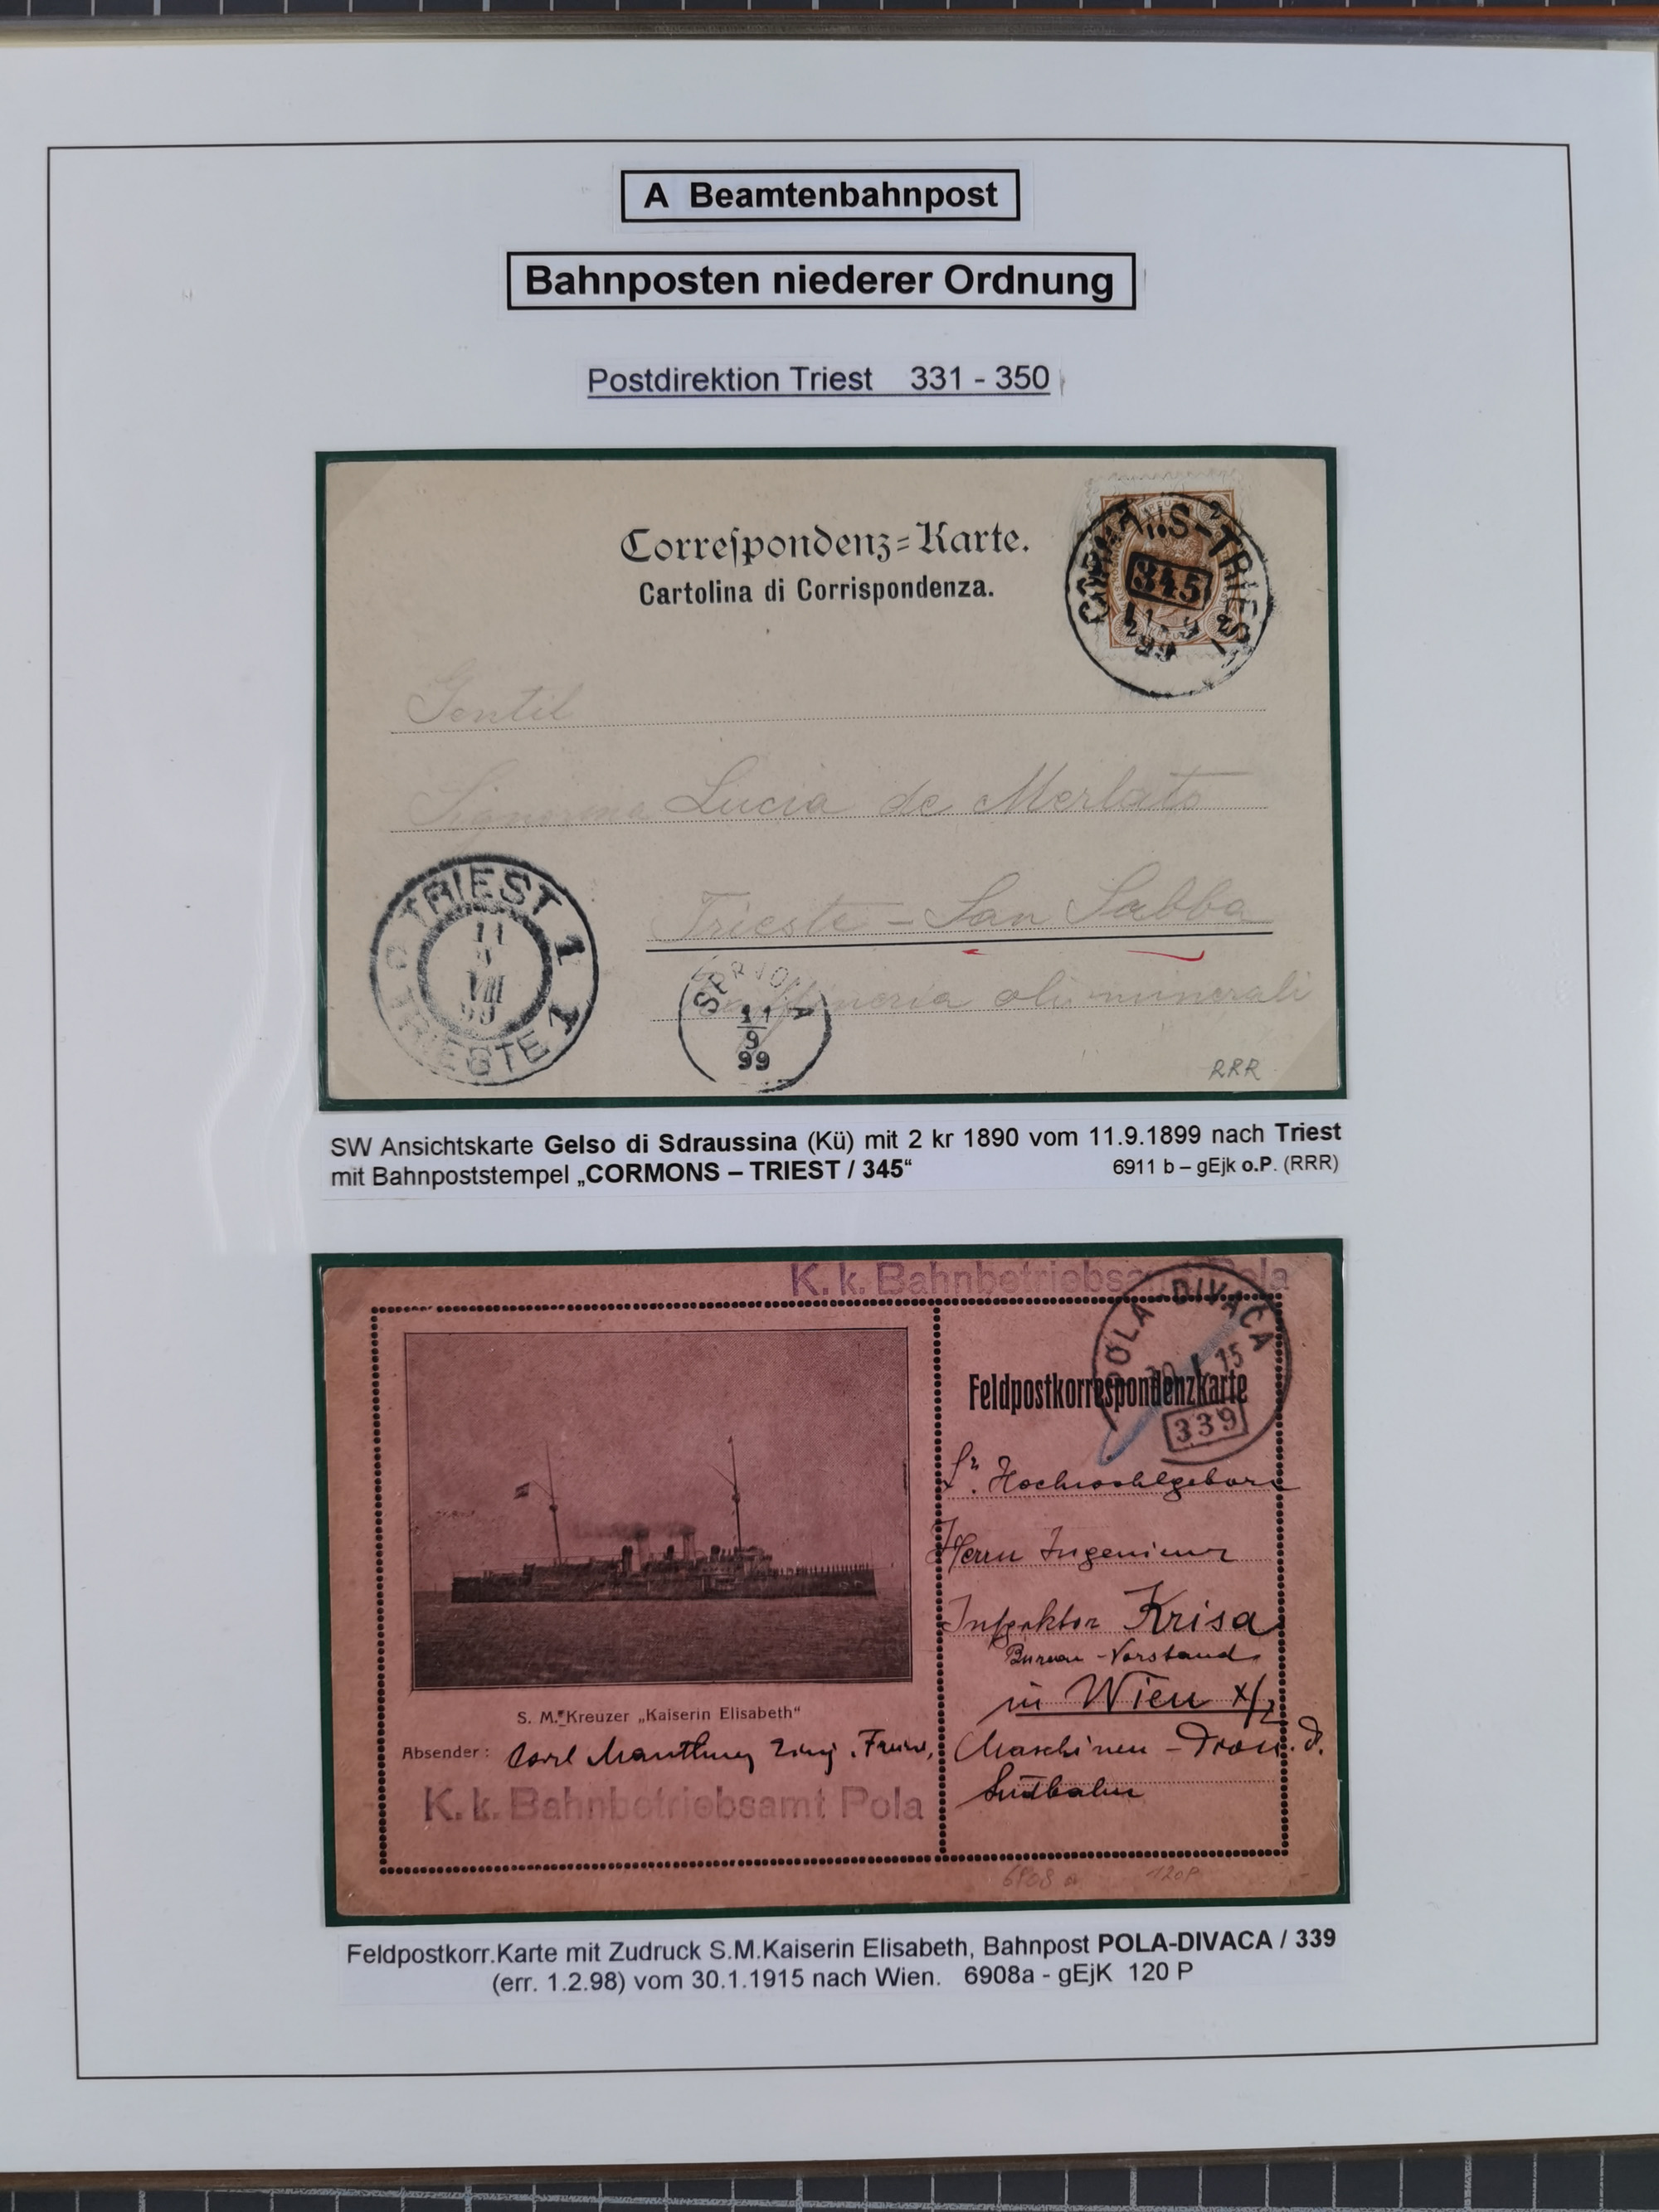 A Beamtenbahnpost
Bahnposten niederer Ordnung
Postdirektion Triest 331 - 350
Correſpondenz=Karte.
Cartolina di Corrispondenza.
CORMONS-TRIEST
345
99
Gentil
Signorina Lucia de Merlato
Trieste - San Sabba
olii minerali
TRIEST 1
11
VIII
99
TRIESTE 1
11
9
99
RRR
SW Ansichtskarte Gelso di Sdraussina (Kü) mit 2 kr 1890 vom 11.9.1899 nach Triest
mit Bahnpoststempel „CORMONS – TRIEST / 345“ 6911 b – gEjk o.P. (RRR)
K. k. Bahnbetriebsamt Pola
POLA-DIVACA
30 I 15
339
Feldpostkorrespondenzkarte
Sr. Hochwohlgeboren
Herrn Ingenieur
Inspektor Krisa
Bureau-Vorstand
in Wien X/2
Maschinen - d.
Südbahn
S. M. Kreuzer „Kaiserin Elisabeth“
Absender: Carl
K. k. Bahnbetriebsamt Pola
6908 a 120P
Feldpostkorr.Karte mit Zudruck S.M.Kaiserin Elisabeth, Bahnpost POLA-DIVACA / 339
(err. 1.2.98) vom 30.1.1915 nach Wien. 6908a - gEjK 120 P